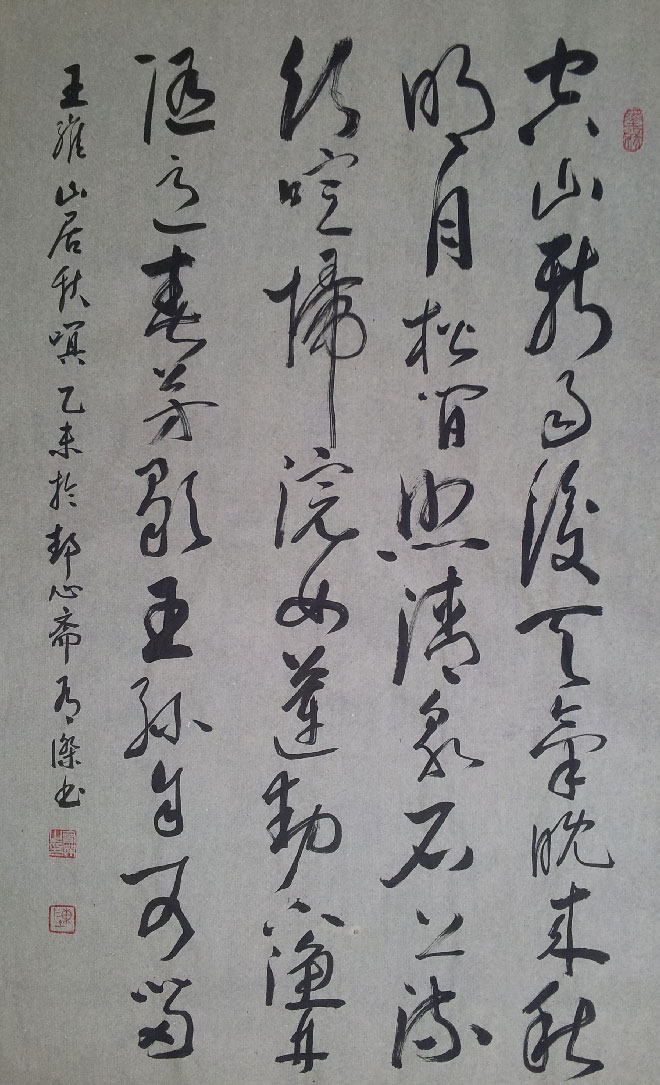 空山新雨後天氣晚來秋
明月松間照清泉石上流
竹喧歸浣女蓮動下漁舟
隨意春芳歇王孫自可留
王維山居秋暝乙未於心斋書